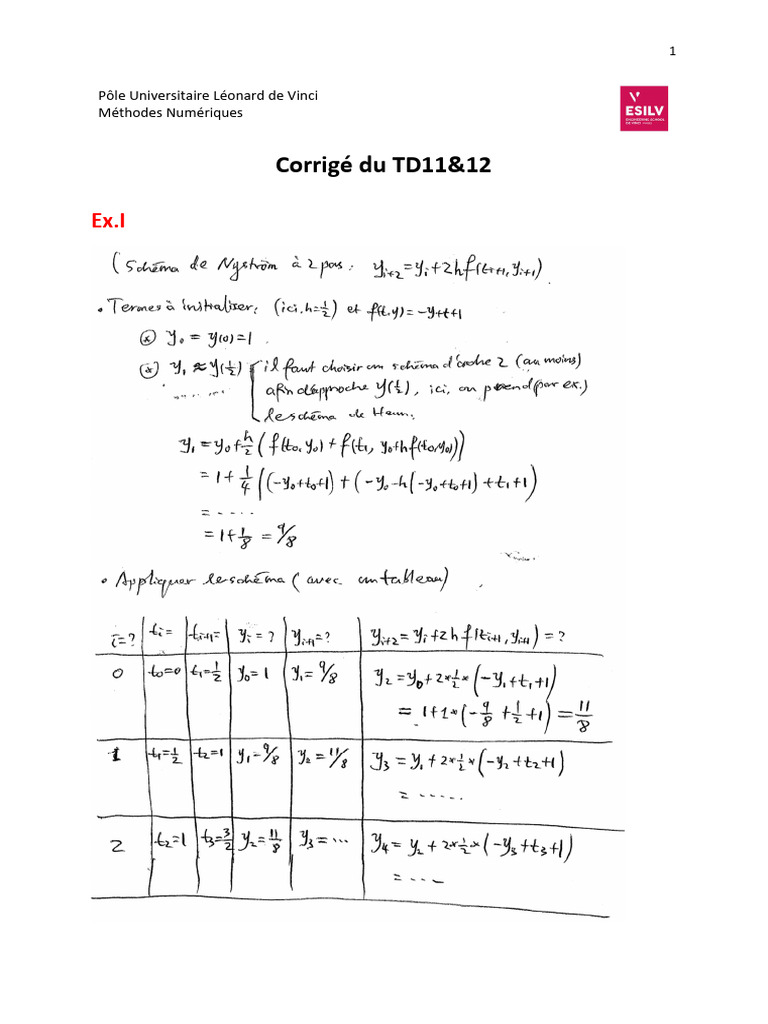 1
Pôle Universitaire Léonard de Vinci
Méthodes Numériques
ESILV
ENGINEERING SCHOOL
Corrigé du TD11&12
Ex.I
(Schéma de Nyström à 2 pas: y_{i+2} = y_i + 2hf(t_{i+1}, y_{i+1})
• Termes à initialiser: (ici, h=1/2) et f(t,y) = -y+t+1
(*) y_0 = y(0) = 1
(*) y_1 ≈ y(1/2) { il faut choisir un schéma d'ordre 2 (au moins)
afin d'approche y(1/2), ici, on prend (par ex.)
le schéma de Heun.
y_1 = y_0 + h/2 (f(t_0, y_0) + f(t_1, y_0 + hf(t_0, y_0)))
= 1 + 1/4 ((-y_0+t_0+1) + (-y_0 - h(-y_0+t_0+1) + t_1+1)
= .....
= 1 + 1/8 = 9/8
• Appliquer le schéma (avec un tableau)
i=? t_i= t_{i+1}= y_i=? y_{i+1}=? y_{i+2} = y_i + 2hf(t_{i+1}, y_{i+1}) = ?
0 t_0=0 t_1=1/2 y_0=1 y_1=9/8 y_2 = y_0 + 2*1/2*(-y_1+t_1+1)
= 1+1*(-9/8+1/2+1) = 11/8
1 t_1=1/2 t_2=1 y_1=9/8 y_2=11/8 y_3 = y_1 + 2*1/2*(-y_2+t_2+1)
= .....
2 t_2=1 t_3=3/2 y_2=11/8 y_3=... y_4 = y_2 + 2*1/2*(-y_3+t_3+1)
= ....